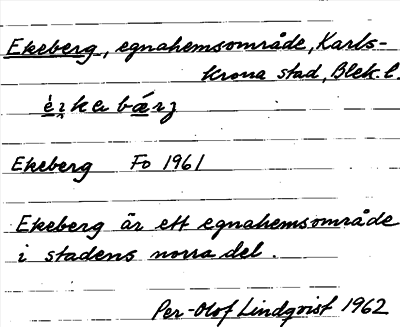 Ekeberg, egnahemsområde, Karls-
krona stad, Blek. l.
Ekeberg Fo 1961
Ekeberg är ett egnahemsområde
i stadens norra del.
Per-Olof Lindqvist 1962